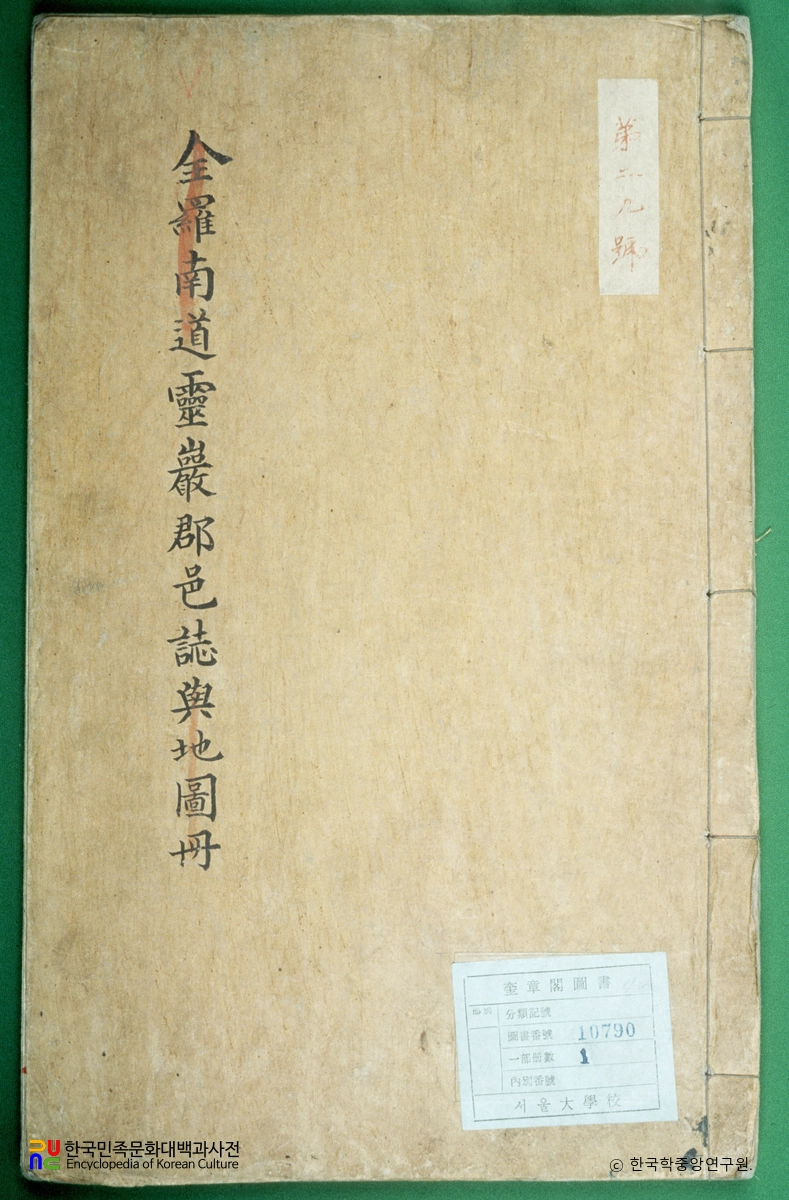 第二九號
全羅南道靈巖郡邑誌輿地圖冊
奎章閣圖書
分類記號
圖書番號 10790
一部冊數 1
內別番號
서울大學校
한국민족문화대백과사전
Encyclopedia of Korean Culture
© 한국학중앙연구원